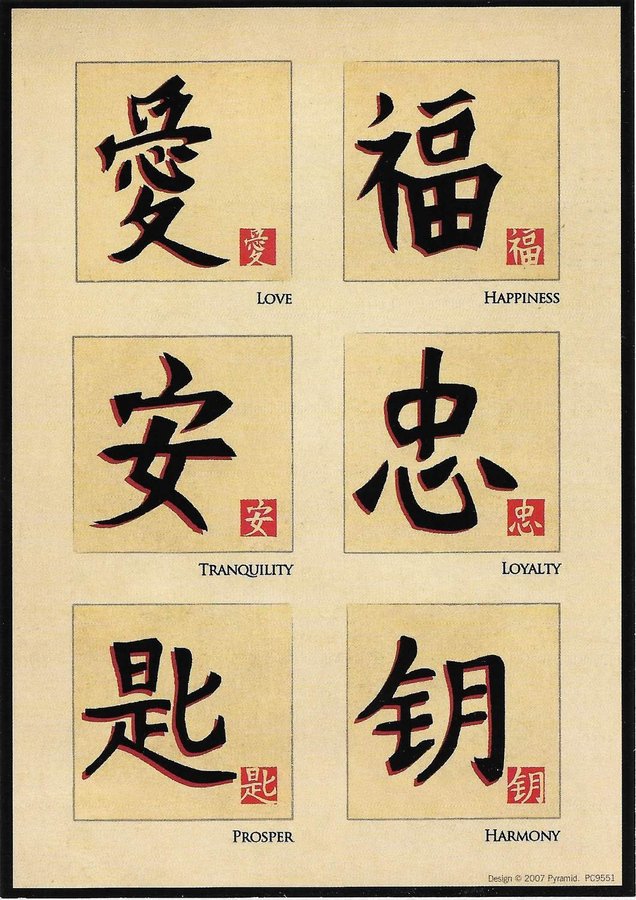 愛 福
愛 福
LOVE HAPPINESS
安 忠
安 忠
TRANQUILITY LOYALTY
匙 钥
匙 钥
PROSPER HARMONY
Design © 2007 Pyramid. PC9551